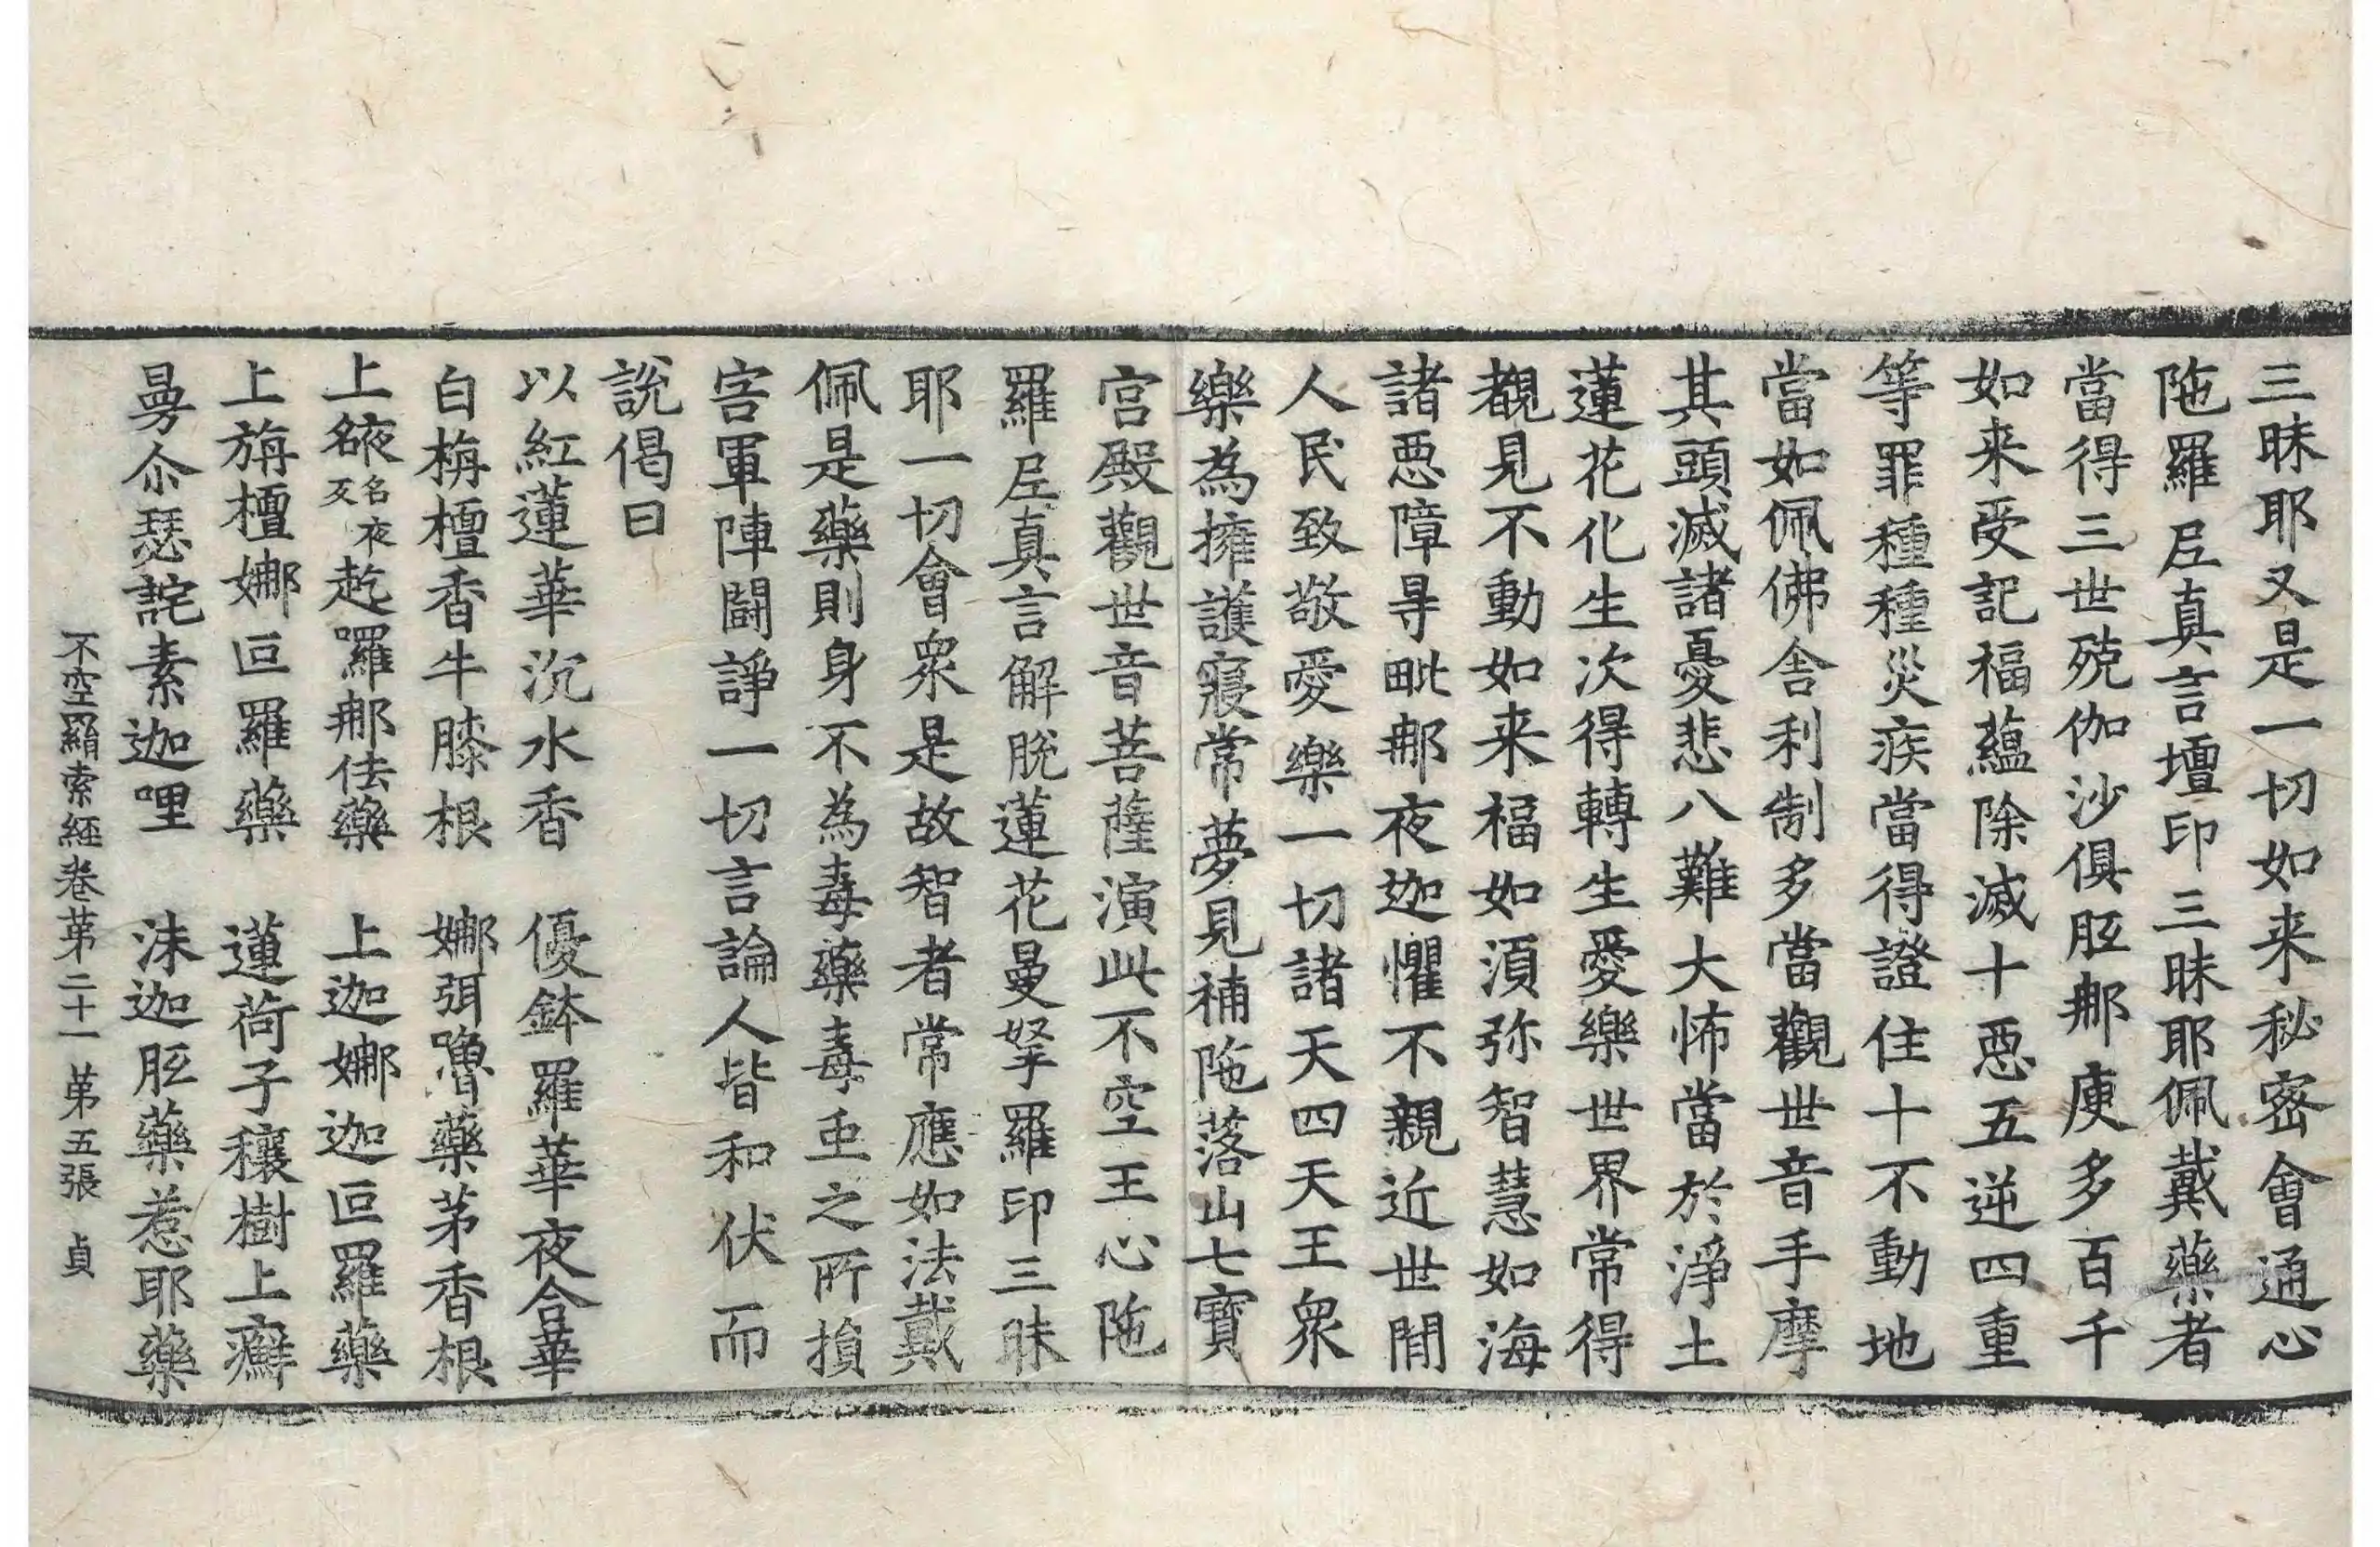 三昧耶又是一切如来秘密會通心
陁羅𡰱真言壇印三昧耶佩戴藥者
當得三世殑伽沙俱胝郍庾多百千
如来受記福蘊除滅十惡五逆四重
等罪種種災疾當得證住十不動地
當如佩佛舍利制多當觀世音手摩
其頭滅諸憂悲八難大怖當於淨土
蓮花化生次得轉生愛樂世界常得
覩見不動如来福如湏弥智慧如海
諸惡障㝵毗郍夜迦懼不親近世閒
人民致敬愛樂一切諸天四天王衆
樂為擁護寢常夢見補陁落山七寶
宮殿觀世音菩薩演此不空王心陁
羅𡰱真言解脫蓮花曼拏羅印三昧
耶一切會衆是故智者常應如法戴
佩是藥則身不為毒藥毒䖝之所損
害軍陣鬪諍一切言論人皆和伏而
說偈曰
以紅蓮華沉水香　優鉢羅華夜合華
白栴檀香牛膝根　娜弭嚕藥茅香根
上𤸷名夜反乞羅郍佉藥　上迦娜迦叵羅藥
上旃檀娜叵羅藥　蓮荷子穰樹上癬
曼尒瑟詑素迦哩　沬迦胝藥惹耶藥
不空羂索經卷第二十一　第五張　貞